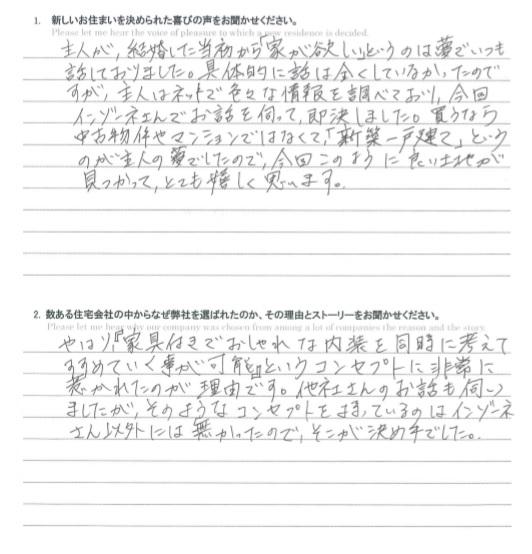 1. 新しいお住まいを決められた喜びの声をお聞かせください。
Please let me hear the voice of pleasure to which a new residence is decided.
主人が、結婚した当初から「家が欲しい」というのは夢でいつも
話しておりました。具体的に話は全くしていなかったので
すが、主人はネットで色々な情報を調べており、今回
インゾーネさんでお話を伺って、即決しました。買うなら
中古物件やマンションではなくて、「新築一戸建て」という
のが主人の夢でしたので、今回このように良い土地が
見つかって、とても嬉しく思います。
2. 数ある住宅会社の中からなぜ弊社を選ばれたのか、その理由とストーリーをお聞かせください。
Please let me hear why our company was chosen from among a lot of companies the reason and the story.
やはり、『家具付きでおしゃれな内装を同時に考えて
すすめていく事が可能』というコンセプトに非常に
惹かれたのが理由です。他社さんのお話も伺い
ましたが、そのようなコンセプトをもっているのはインゾーネ
さん以外には無かったので、そこが決め手でした。